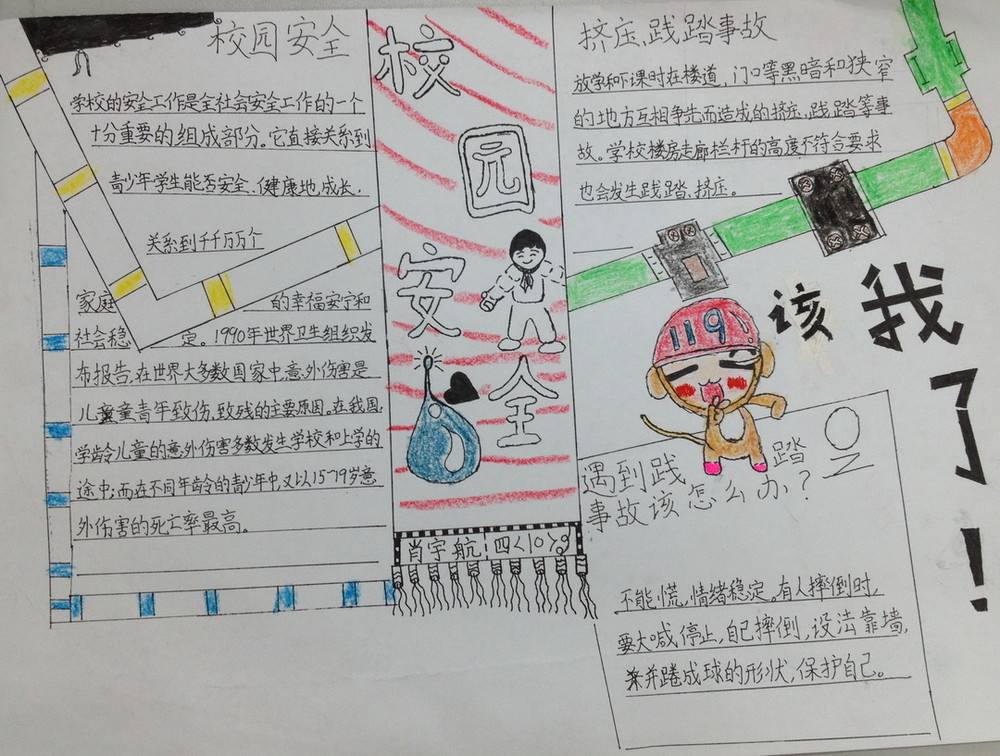 校园安全
学校的安全工作是全社会安全工作的一个
十分重要的组成部分。它直接关系到
青少年学生能否安全、健康地成长.
关系到千千万万个
家庭的幸福安宁和
社会稳定。1990年世界卫生组织发
布报告,在世界大多数国家中,意外伤害是
儿童青年致伤,致残的主要原因。在我国,
学龄儿童的意外伤害多数发生学校和上学的
途中;而在不同年龄的青少年中,又以15-79岁意
外伤害的死亡率最高。
校
园
安
全
肖宇航:四<10>g
挤压、践踏事故
放学和下课时在楼道,门口等黑暗和狭窄
的地方互相争先而造成的挤压,践踏等事
故。学校楼房走廊栏杆的高度不符合要求
也会发生践踏、挤压。
119!
该我了!
遇到践踏
事故该怎么办?
不能慌,情绪稳定。有人摔倒时,
要大喊停止,自己摔倒,设法靠墙,
并蜷成球的形状,保护自己。